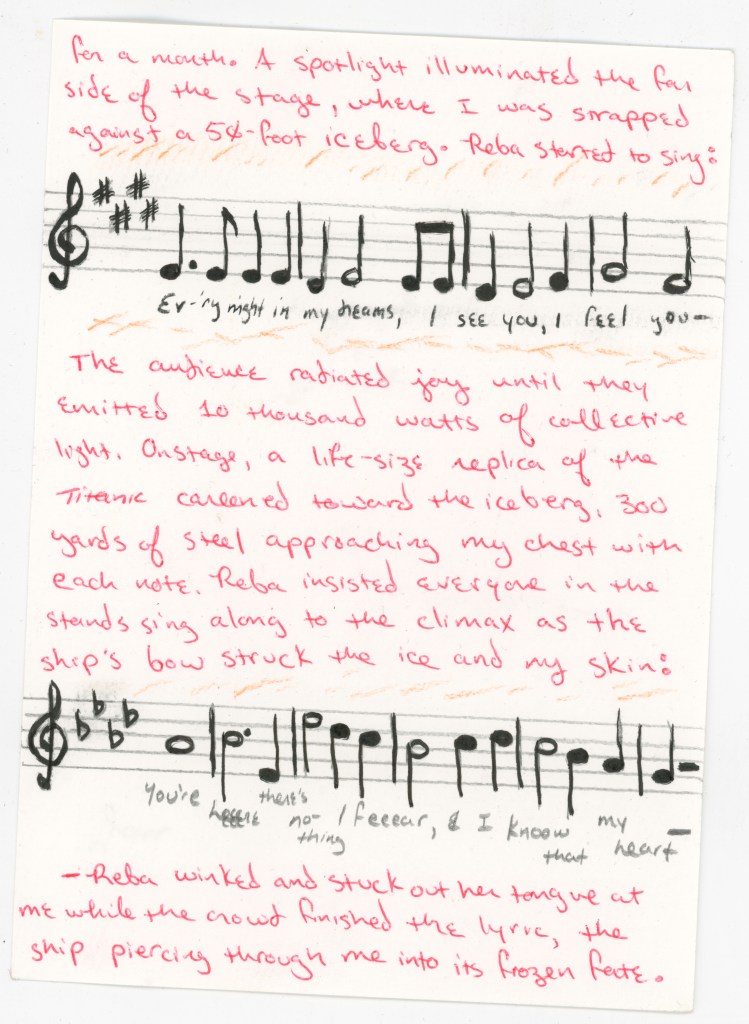 for a month. A spotlight illuminated the far
side of the stage, where I was strapped
against a 50-foot iceberg. Reba started to sing:
Ev-'ry night in my dreams, I see you, I feel you-
The audience radiated joy until they
emitted 10 thousand watts of collective
light. Onstage, a life-size replica of the
Titanic careened toward the iceberg, 300
yards of steel approaching my chest with
each note. Reba insisted everyone in the
stands sing along to the climax as the
ship's bow struck the ice and my skin:
You're heeere there's no-thing I feeear, & I knoow that my heart-
-Reba winked and stuck out her tongue at
me while the crowd finished the lyric, the
ship piercing through me into its frozen fate.